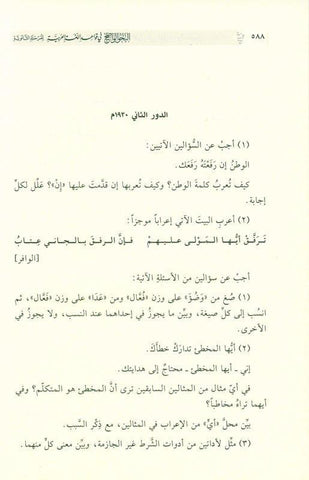 ٥٨٨ النحو الواضح في قواعد اللغة العربية
الدور الثاني ١٩٣٠م
(١) أجبْ عن السُّؤالين الآتيين:
الوطنُ إن رَفَعْتَهُ رَفَعَك.
كيف تُعربُ كلمةَ الوطن؟ وكيف تُعربها إن قدَّمتَ عليها «إنْ»؟ علِّل لكلِّ
إجابة.
(٢) أعرب البيتَ الآتي إعراباً موجزاً:
تَرفَّقْ أيُّها المَوْلى عليهمْ فإنَّ الرفقَ بالجاني عِتابُ
[الوافر]
أجبْ عن سؤالين من الأسئلةِ الآتية:
(١) صُغ من «وَضُؤَ» على وزن «فُعَّال» ومن «عَدَا» على وزن «فَعَّال»، ثم
انسُب إلى كلِّ صيغة، وبيِّن ما يجوزُ في إحداهما عند النسب، ولا يجوزُ في
الأخرى.
(٢) أيُّها المخطئُ تداركْ خطأكَ.
إني ـ أيها المخطئ ـ محتاجٌ إلى هدايتك.
في أيِّ مثال من المثالين السابقين ترى أنَّ المخطئَ هو المتكلِّم؟ وفي
أيهما تراهُ مخاطباً؟
بيِّن محلَّ «أيّ» من الإعراب في المثالين، مع ذِكْر السَّبب.
(٣) مثِّل لأداتين من أدوات الشَّرط غير الجازمة، وبيِّن معنى كلٍّ منهما.